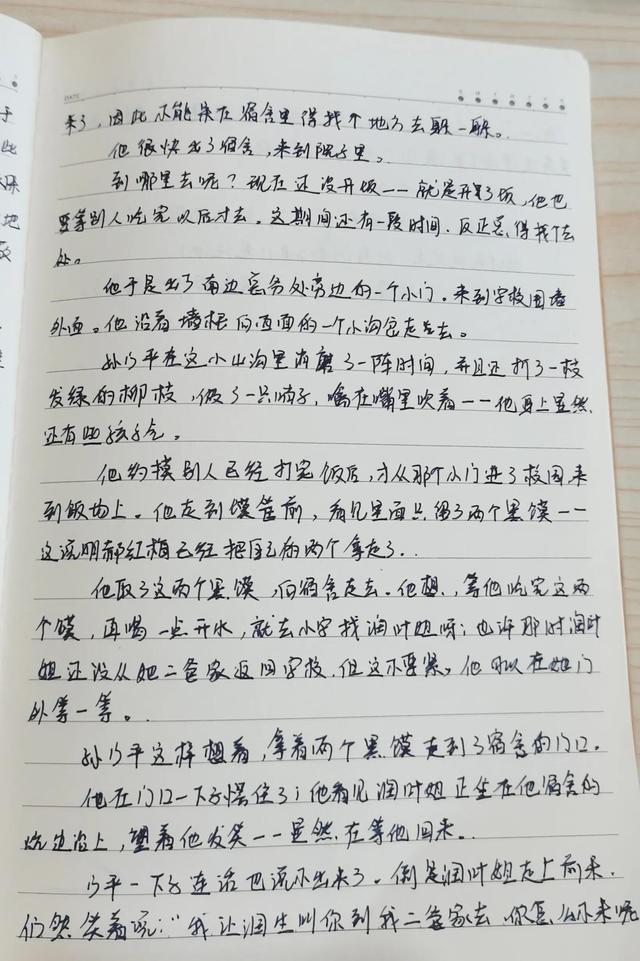 DATE
来了，因此不能呆在宿舍里得找个地方去躲一躲。
他很快出了宿舍，来到院子里。
到哪里去呢？现在还没开饭——就是开了饭，他也
要等别人吃完以后才去。这期间还有一段时间，反正总得找个去
处。
他于是出了南边总务处旁边的一个小门，来到学校围墙
外面。他沿着墙根向西面的一个小沟岔走去。
孙少平在这小山沟里消磨了一阵时间，并且还折了一枝
发绿的柳枝，做了一只哨子，噙在嘴里吹着——他身上显然
还有些孩子气。
他约摸别人已经打完饭后，才从那个小门进了校园，来
到饭场上。他走到馍筐前，看见里面只留了两个黑馍——
这说明郝红梅已经把自己的两个拿走了。
他取了这两个黑馍，向宿舍走去。他想，等他吃完这两
个馍，再喝一点开水，就去小学找润叶姐呀；也许那时润叶
姐还没从她二爸家返回学校，但这不要紧。他可以在她门
外等一等。
孙少平这样想着，拿着两个黑馍走到了宿舍的门口。
他在门口一下子愣住了；他看见润叶姐正坐在他宿舍的
炕边沿上，望着他发笑——显然在等他回来。
少平一下子连话也说不出来了。倒是润叶姐走上前来，
仍然笑着说："我让润生叫你到我二爸家去，你怎么不来呢
于
此
床
地